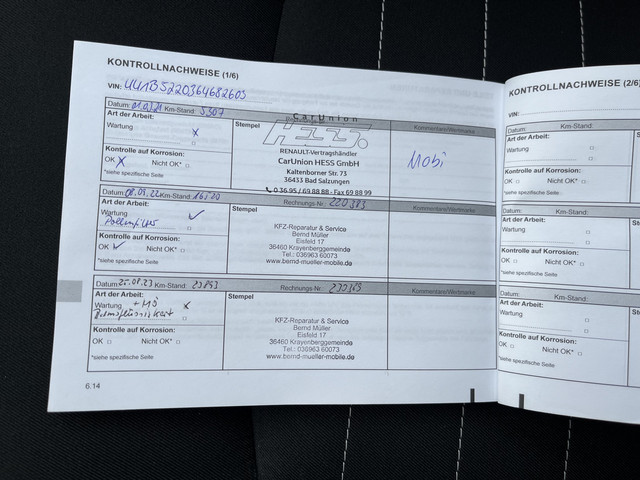 KONTROLLNACHWEISE (1/6)
VIN:
Datum: 01.03.21 Km-Stand: 5307
Art der Arbeit:
Wartung x
Stempel
Kommentare/Wertmarke
CarUnion
HESS.
RENAULT-Vertragshändler
CarUnion HESS GmbH
Kaltenborner Str. 73
36433 Bad Salzungen
0 36 95 / 69 88 88 - Fax 69 88 99
Mobi
Kontrolle auf Korrosion:
OK x Nicht OK*
*siehe spezifische Seite
Datum: 08.03.22 Km-Stand:
Rechnungs-Nr.: 220383
Kommentare/Wertmarke
Art der Arbeit:
Wartung ✓
Pollenfilter
Stempel
KFZ-Reparatur & Service
Bernd Müller
Eisfeld 17
36460 Krayenberggemeinde
Tel.: 036963 60073
www.bernd-mueller-mobile.de
Kontrolle auf Korrosion:
OK ✓ Nicht OK*
*siehe spezifische Seite
Datum: Km-Stand: 23893
Rechnungs-Nr.: 230365
Kommentare/Wertmarke
Art der Arbeit:
Wartung x
Bremsflüssigkeit
Stempel
KFZ-Reparatur & Service
Bernd Müller
Eisfeld 17
36460 Krayenberggemeinde
Tel.: 036963 60073
www.bernd-mueller-mobile.de
Kontrolle auf Korrosion:
OK Nicht OK*
*siehe spezifische Seite
6.14
KONTROLLNACHWEISE (2/6)
VIN:
Datum: Km-Stand:
Art der Arbeit:
Wartung
Kontrolle auf Korrosion:
OK Nicht OK*
*siehe spezifische Seite
Datum: Km-Stand:
Art der Arbeit:
Wartung
Kontrolle auf Korrosion:
OK Nicht OK*
*siehe spezifische Seite
Datum: Km-Stand:
Art der Arbeit:
Wartung
Kontrolle auf Korrosion:
OK Nicht OK*
*siehe spezifische Seite